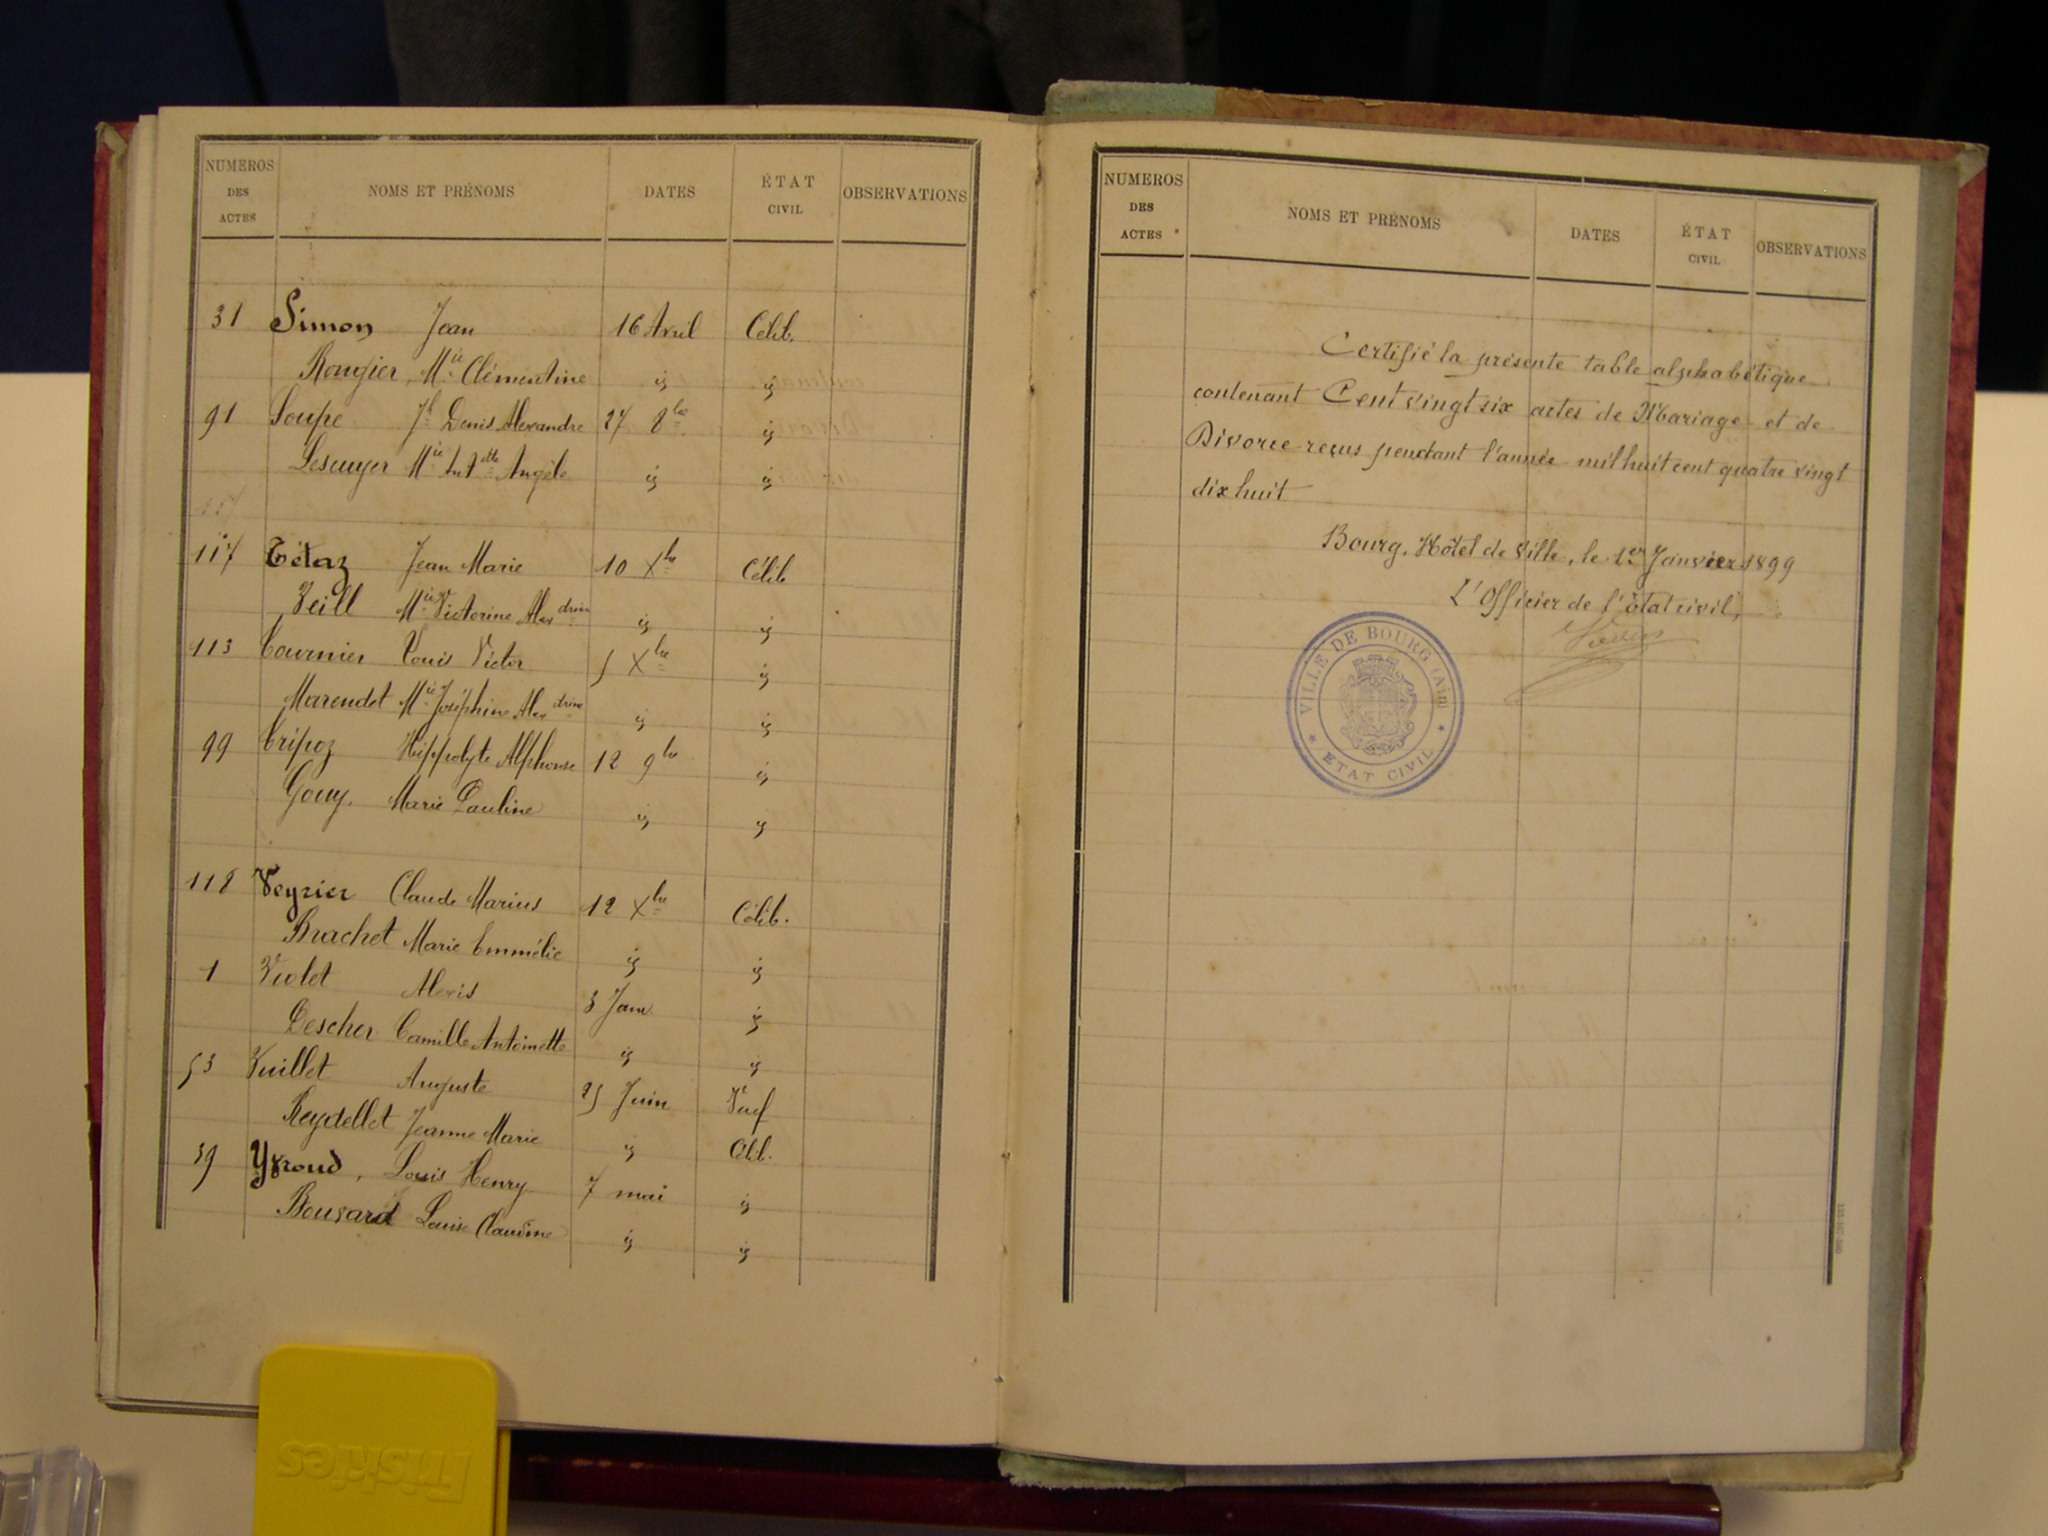 NUMEROS DES ACTES NOMS ET PRÉNOMS DATES ÉTAT CIVIL OBSERVATIONS
31 Simon Jean 16 Avril Célib.
Rougier Mie Clémentine id id
91 Soupe Jh Denis Alexandre 27 8bre id
Lescuyer Mie Antette Angèle id id
117
117 Tétaz Jean Marie 10 Xbre Célib
Veill Mie Victorine Alexdrine id id
113 Tournier Louis Victor 5 Xbre id
Marendet Mie Joséphine Alexdrine id id
99 Tripoz Hippolyte Alphonse 12 9bre id
Gouy. Marie Pauline id id
118 Veyrier Claude Marius 12 Xbre Célib.
Brachet Marie Emmélie id id
1 Violet Alexis 3 Janv. id
Descher Camille Antoinette id id
53 Vuillet Auguste 25 Juin Veuf
Reydellet Jeanne Marie id Célib.
39 Yvroud, Louis Henry 7 mai id
Bousard Louise Claudine id id
NUMEROS DES ACTES NOMS ET PRÉNOMS DATES ÉTAT CIVIL OBSERVATIONS
Certifié la présente table alphabétique
contenant Cent vingt six actes de Mariage et de
Divorce reçus pendant l'année mil huit cent quatre vingt
dix huit
Bourg, Hôtel de Ville, le 1er Janvier 1899
L'Officier de l'état civil,
VILLE DE BOURG (Ain)
ETAT CIVIL
Friskies